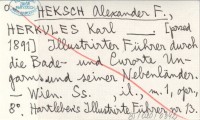 HEKSCH Alexander F.,
HERKULES Karl [pored
1891] Illustrirter Führer durch
die Bade- und Curorte Un-
garns und seiner Nebenländer.
— Wien. Ss. il., m. 1, opr.,
8°. Hartlebens Illustrirte Führer nr 13.